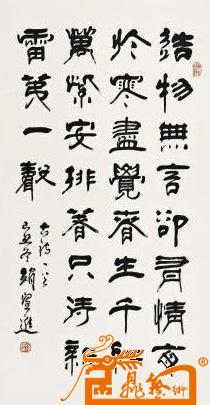 造物無言卻有情每
於寒盡覺春生千紅
萬紫安排着只待新
雷第一聲
趙望進